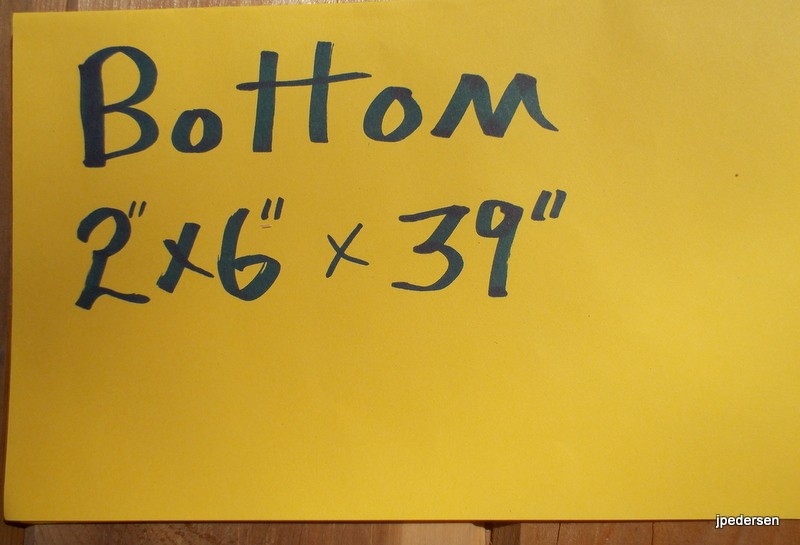 Bottom
2" x 6" x 39"
jpedersen